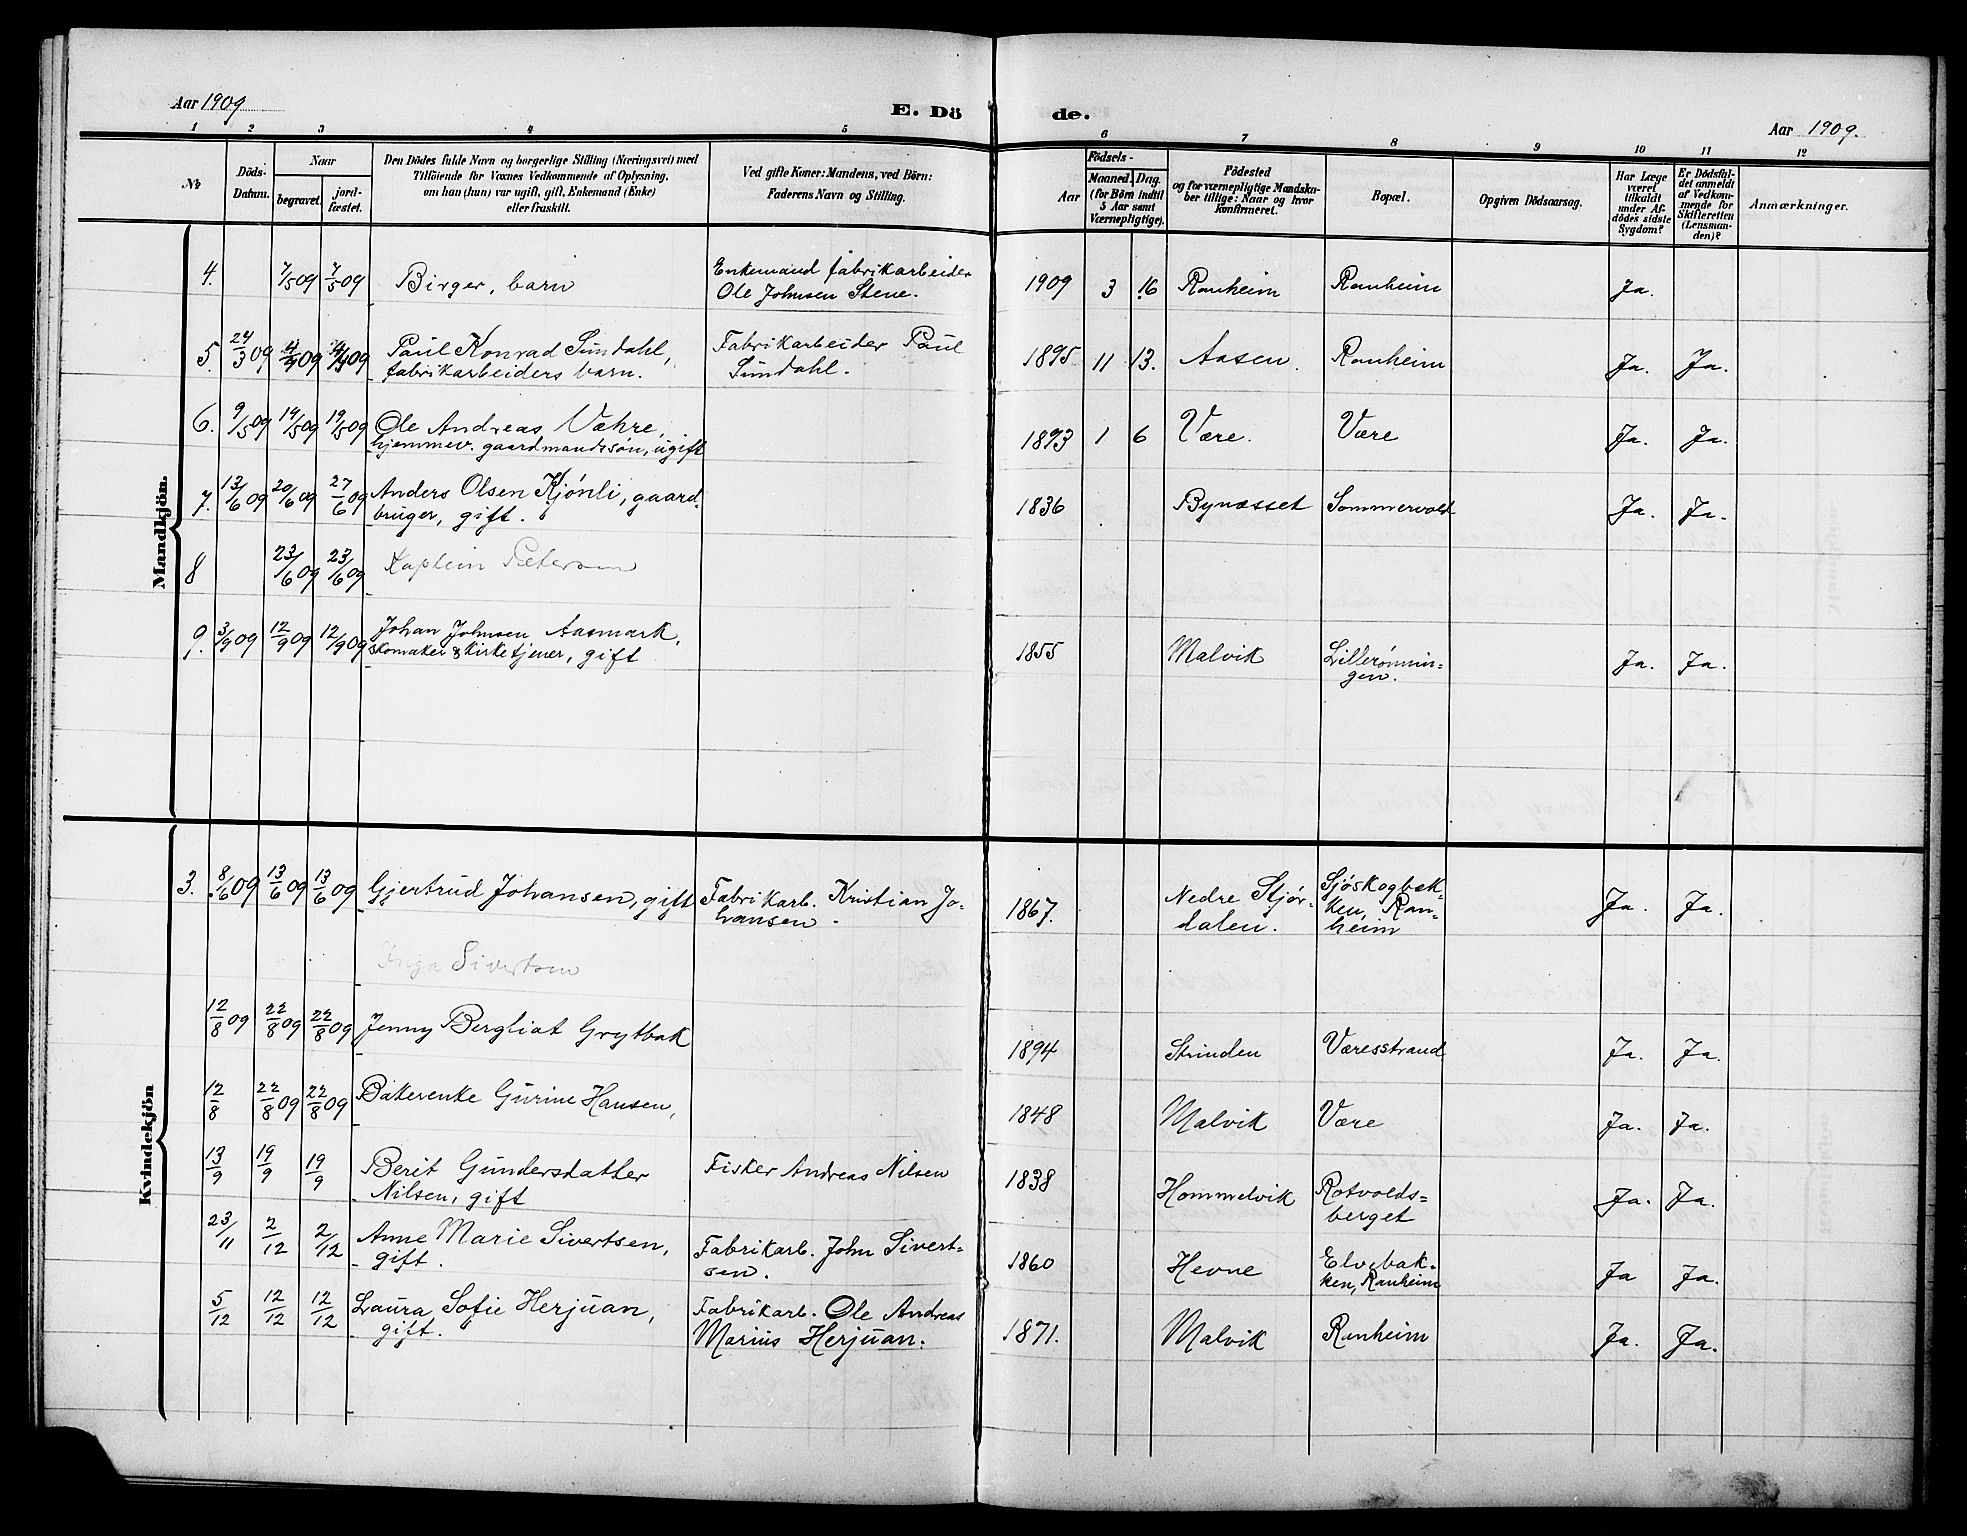 Aar 1909
E. Dö de.
Aar 1909.
1 2 3 4 5 6 7 8 9 10 11 12
No
Döds-Datum.
Naar
begravet.
jord-fæstet.
Den Dödes fulde Navn og borgerlige Stilling (Næringsvei) med
Tilföiende for Voxnes Vedkommende af Oplysning,
om han (hun) var ugift, gift, Enkemand (Enke)
eller fraskilt.
Ved gifte Koner: Mandens, ved Börn:
Faderens Navn og Stilling.
Födsels-
Aar
Maaned. Dag.
(for Börn indtil
5 Aar samt
Værnepligtige).
Födested
og for værnepligtige Mandska-
ber tillige: Naar og hvor
konfirmeret.
Bopæl.
Opgiven Dödsaarsag.
Har Læge
været
tilkaldt
under Af-
dödes sidste
Sygdom?
Er Dödsfal-
det anmeldt
af Vedkom-
mende for
Skifteretten
(Lensman-
den)?
Anmærkninger.
Mandkjön.
4. 7/5 09 7/5 09 Birger, barn Enkemand fabrikarbeider 1909 3 16 Ranheim Ranheim Ja.
Ole Johnsen Stene.
5. 24/3 09 4/4 09 4/4 09 Paul Konrad Sundahl, Fabrikarbeider Paul 1895 11 13. Aasen. Ranheim Ja. Ja.
fabrikarbeiders barn. Sundahl.
6. 9/5 09 19/5 09 19/5 09 Ole Andreas Væhre, 1893 1 6 Være. Være Ja. Ja.
hjemmev. gaardmandssøn, ugift
7. 13/6 09 20/6 09 27/6 09 Anders Olsen Kjønli, gaard- 1836 Bynæsset Sommervold Ja. Ja.
bruger, gift.
8 23/6 09 23/6 09 Kaptein Peterson
9. 3/9 09 12/9 09 12/9 09 Johan Johnsen Aasmark, 1855 Malvik Lillerønnin- Ja. Ja.
skomaker & kirketjener, gift gen.
Kvindekjön
3. 8/6 09 13/6 09 13/6 09 Gjertrud Johansen, gift Fabrikarb. Kristian Jo- 1867. Nedre Stjør- Sjøskogbak- Ja. Ja.
hansen. dalen. ken, Ran-
heim
Inga Sivertsen
12/8 09 22/8 09 22/8 09 Jenny Bergliot Grytbak 1894 Strinden Væresstrand Ja. Ja.
12/8 22/8 09 22/8 09 Bakerenke Gurine Hansen, 1848 Malvik Være Ja. Ja.
13/9 19/9 19/9 Berit Gundersdatter Fisker Andreas Nilsen 1838 Hommelvik Rotvolds- Ja. Ja.
Nilsen, gift berget
23/11 2/12 2/12 Anne Marie Sivertsen, Fabrikarb. John Sivert- 1860 Hevne Elvebak- Ja Ja.
gift. sen. ken, Ranheim
5/12 12/12 12/12 Laura Sofie Herjuan, Fabrikarb. Ole Andreas 1871. Malvik Ranheim Ja. Ja.
gift. Marius Herjuan.